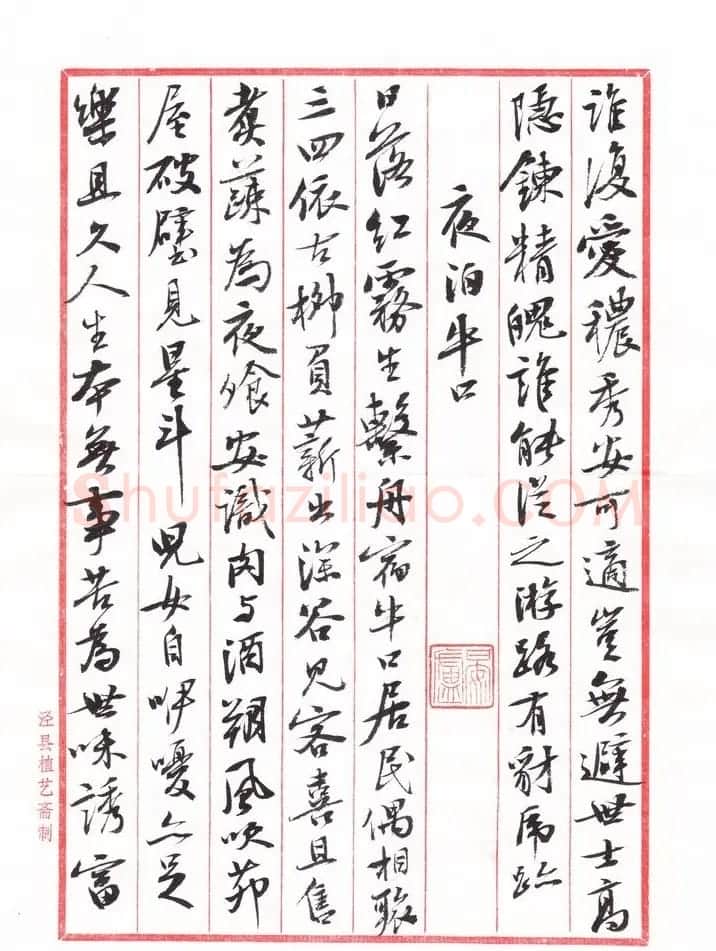 誰復愛穠秀安可適豈無避世士高
隱鍊精魄誰能從之游路有豺虎跡
夜泊牛口
日落紅霧生繫舟宿牛口居民偶相聚
三四依古柳負薪出深谷見客喜且售
煮蔬為夜飧安識肉与酒朔風吹茆
屋破壁見星斗兒女自咿嚘亦足
樂且久人生本無事苦為世味誘富
泾县植艺斋制
Shufaziliao.COM